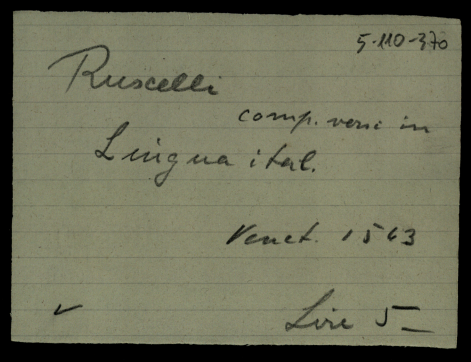 5-110-370
Ruscelli
comp. versi in
Lingua ital.
Venet. 1563
Lire 5—